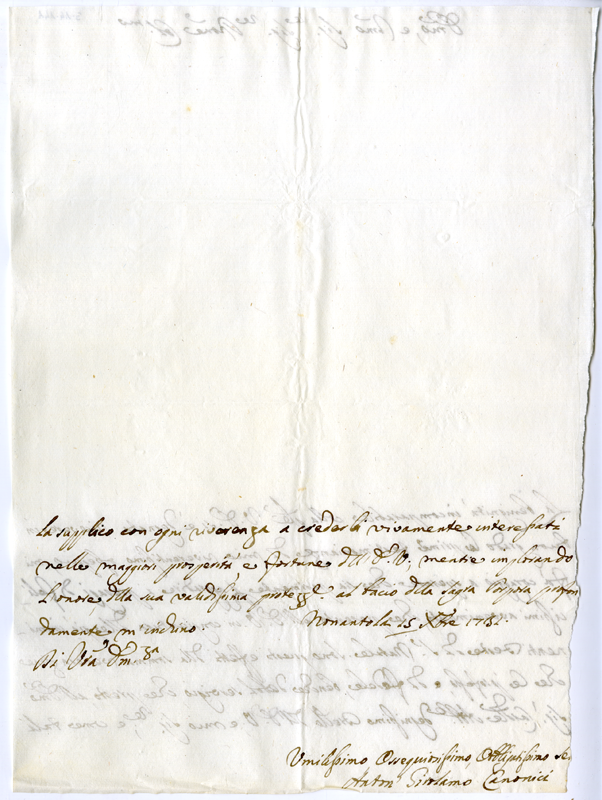 La supplico con ogni riverenza a crederli vivamente interessati
nelle maggiori prosperità, e fortune dell' E. V., mentre implorando
l'onore dlla sua validissima protez.e al bacio dlla sagra Porpora profon
damente m'inchino. Nonantola 15 Xbre 1732
Di Vra Em.za
Umilissimo Ossequiosissimo, Obbligatissimo Se
Anton Girolamo Canonici